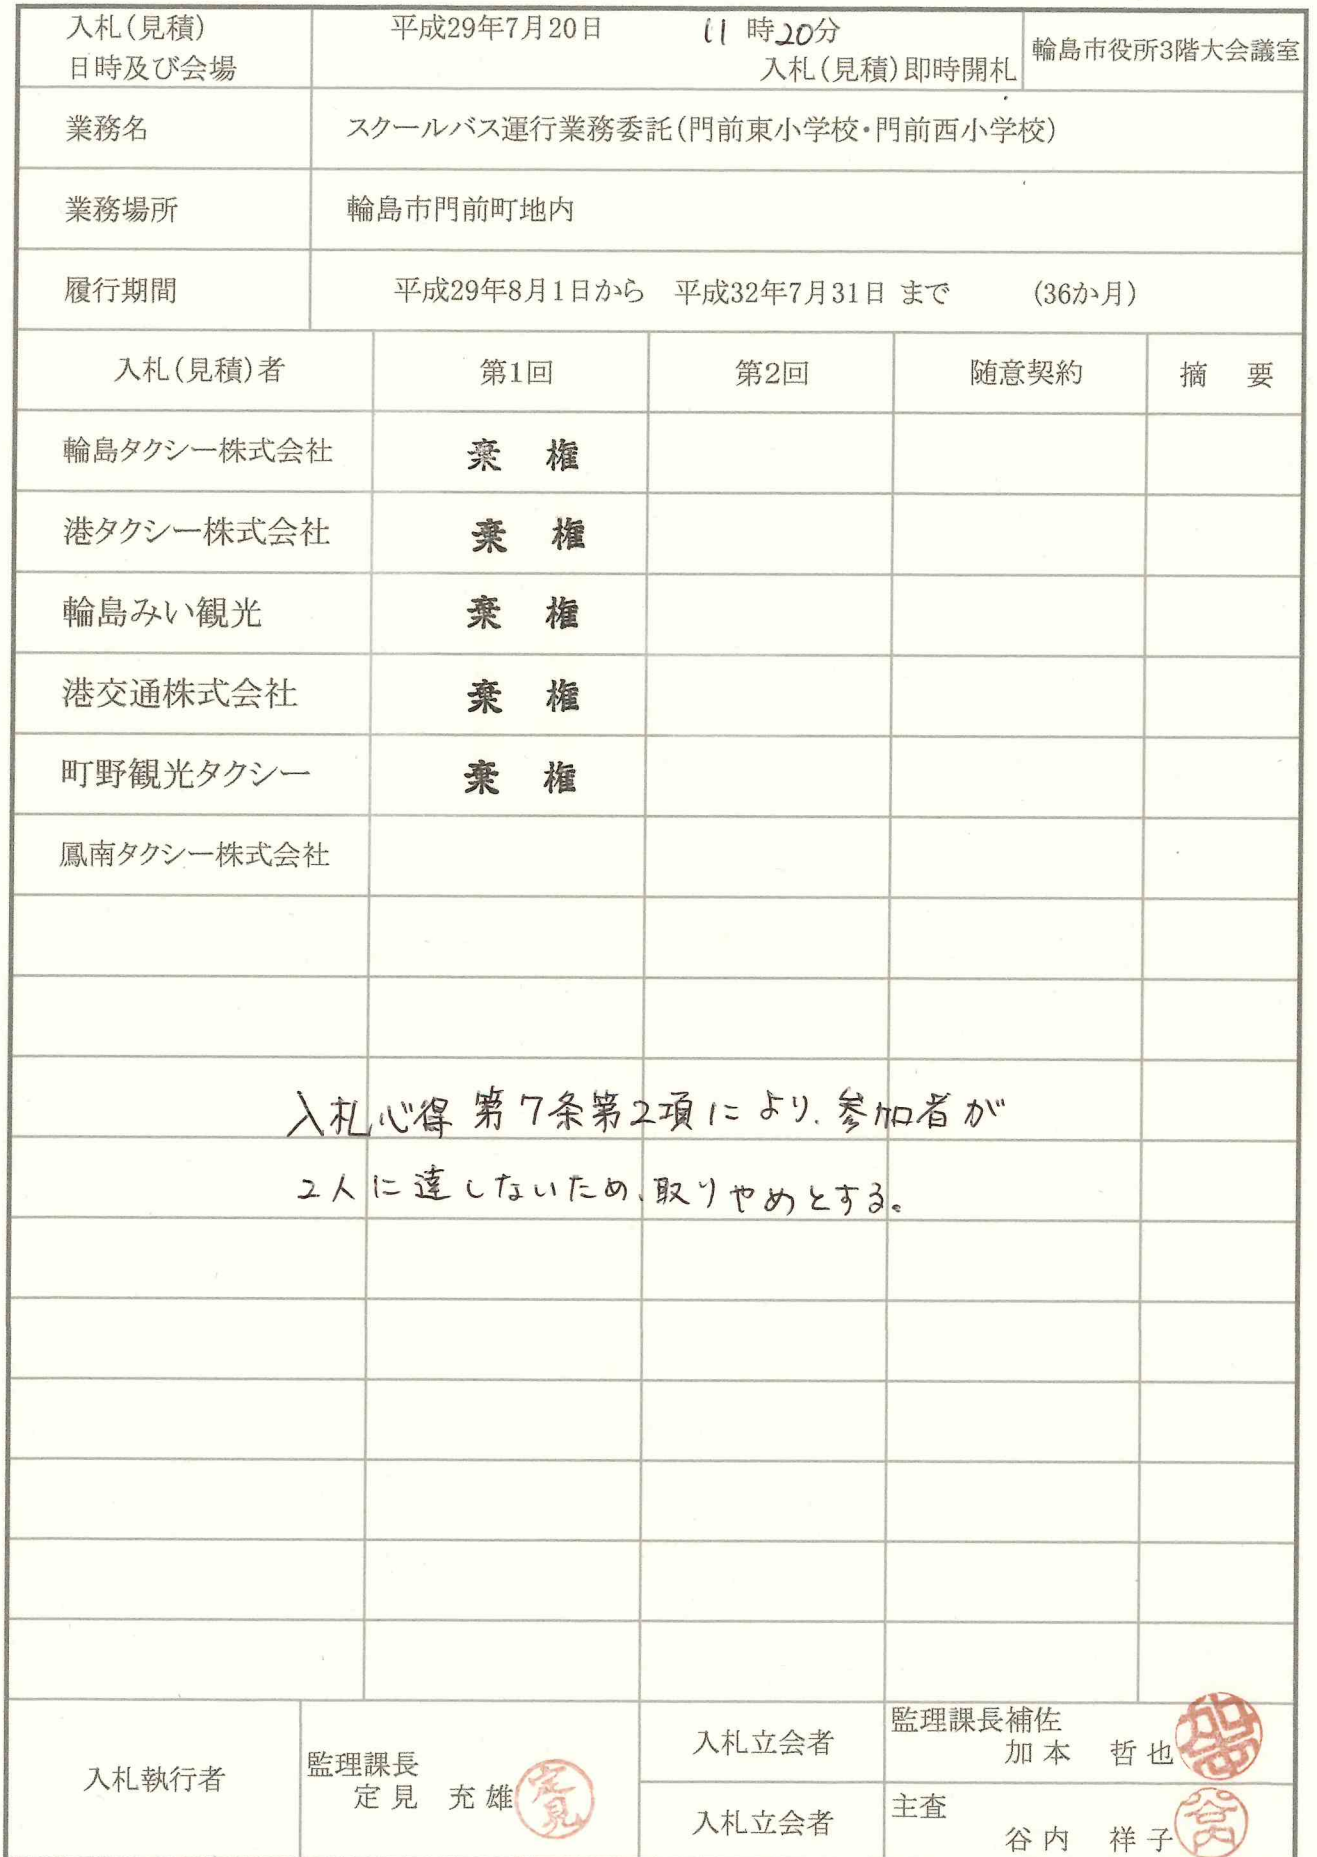 入札(見積)
日時及び会場
平成29年7月20日 11時20分
入札(見積)即時開札
輪島市役所3階大会議室
業務名 スクールバス運行業務委託(門前東小学校・門前西小学校)
業務場所 輪島市門前町地内
履行期間 平成29年8月1日から 平成32年7月31日 まで (36か月)
入札(見積)者 第1回 第2回 随意契約 摘 要
輪島タクシー株式会社 棄 権
港タクシー株式会社 棄 権
輪島みい観光 棄 権
港交通株式会社 棄 権
町野観光タクシー 棄 権
鳳南タクシー株式会社
入札心得第7条第2項により、参加者が
2人に達しないため、取りやめとする。
入札執行者
監理課長
定見 充雄
定見
入札立会者
監理課長補佐
加本 哲也
入札立会者
主査
谷内 祥子
谷内